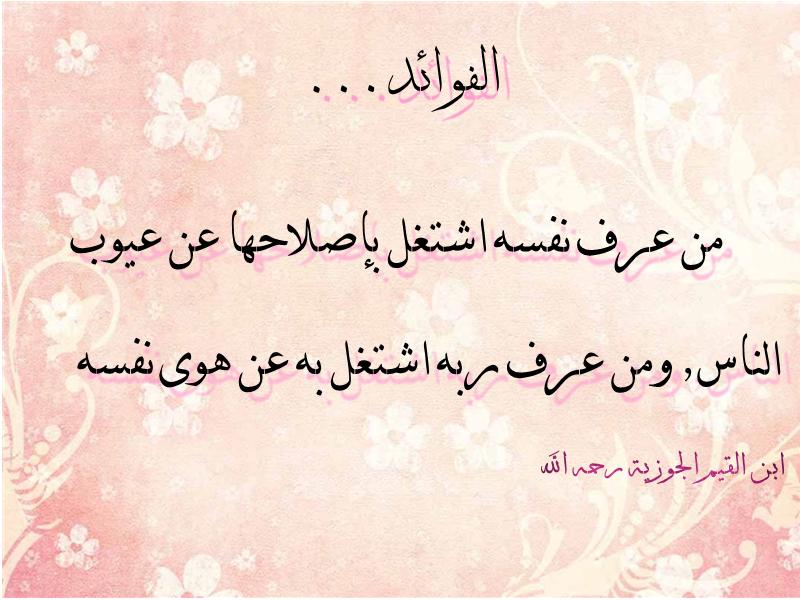 الفوائد . . .
من عرف نفسه اشتغل بإصلاحها عن عيوب
الناس, ومن عرف ربه اشتغل به عن هوى نفسه
ابن القيم الجوزية رحمه الله